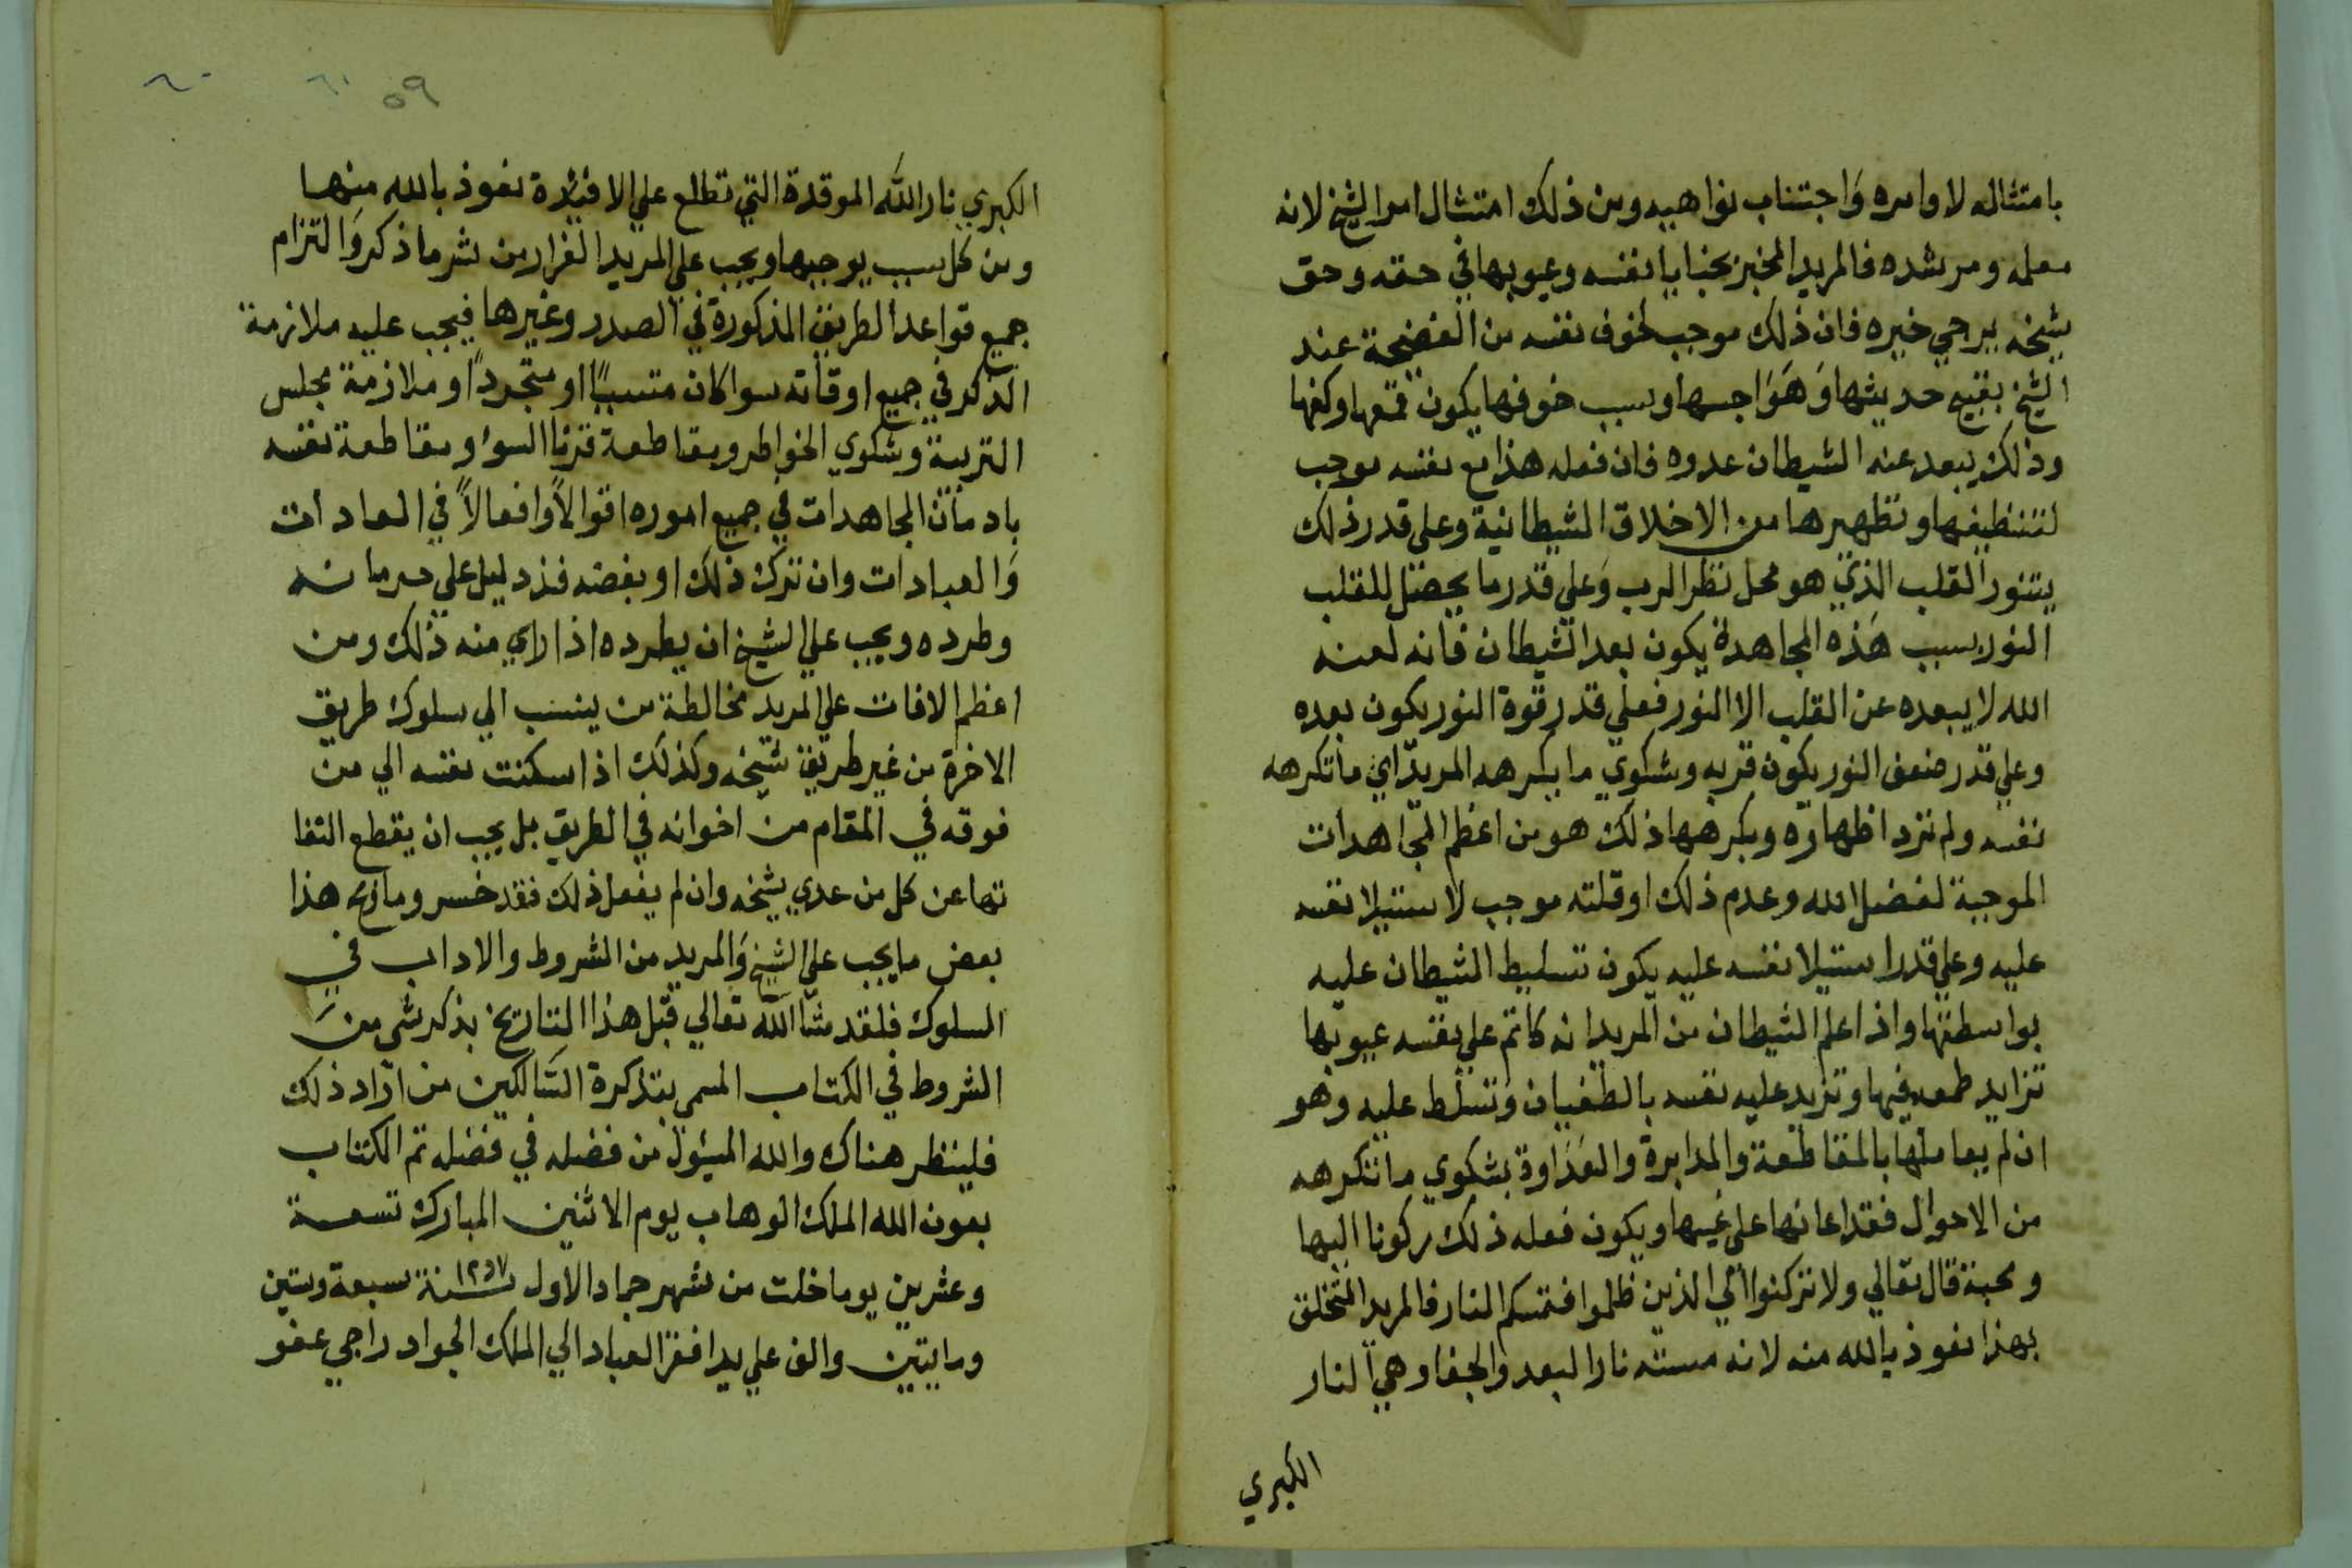 بامتثاله لاوامره وَاجتناب نواهيه ومن ذلك امتثال امر الشيخ لانه
معلمه ومرشده فالمريد المخبر بخبايا نفسه وعيوبها في حقه وحق
شيخه يرجي خيره فان ذلك موجب لخوف نفسه من الفضيحة عند
الشيخ بقبيح حديثها وَهَوَاجسها وبسبب خوفها يكون قمعها وكفها
وذلك يبعد عنه الشيطان عدوه فان فعله هذا مع نفسه موجب
لتنظيفها وتطهيرها من الاخلاق الشيطانية وعلى قدر ذلك
يتنور القلب الذي هو محل نظر الرب وَعلي قدر ما يحصل للقلب
النور بسبب هَذه المجاهدة يكون بعد الشيطان فانه لعنه
الله لا يبعده عن القلب الا النور فعلي قدر قوة النور يكون بعده
وعلي قدر ضعف النور يكون قربه وشكوي ما يكرهه المريد اي ما تكرهه
نفسه ولم ترد اظهاره ويكرهها ذلك هو من اعظم المجاهدات
الموجبة لفضل الله وعدم ذلك او قلته موجب لاستيلا نفسه
عليه وعلي قدر استيلا نفسه عليه يكون تسليط الشيطان عليه
بواسطتها واذا علم الشيطان من المريد انه كاتم علي نفسه عيوبها
تزايد طمعه فيها وتزيد عليه نفسه بالطغيان وتسلط عليه وهو
ان لم يعاملها بالمقاطعة والمدابرة والعَدَاوة بشكوي ما تكرهه
من الاحوال فقد اعانها على غيها ويكون فعله ذلك ركونا اليها
ومحبة قال تعالي ولا تركنوا الي الذين ظلموا فتمسكم النار فالمريد المتخلق
بهذا نعوذ بالله منه لانه مسته نار البعد والجفا وهي النار
الكبري
٥٩ ٦١ ٦٠
الكبري نار الله الموقدة التي تطلع علي الافئدة نعوذ بالله منها
ومن كل سبب يوجبها ويجب علي المريد الفرار من شر ما ذكر وَالتزام
جميع قواعد الطريق المذكورة في الصدر وغيرها فيجب عليه ملازمة
الذكر في جميع اوقاته سوا كان متسببًا او متجردًا وملازمة مجلس
التربية وشكوي الخواطر ومقاطعة قرنا السوء ومقاطعة نفسه
بادمان المجاهدات في جميع اموره اقوالاً وافعالاً في العادات
وَالعبادات وان ترك ذلك او بعضه فذ دليل علي حرمانه
وطرده ويجب علي الشيخ ان يطرده اذا راي منه ذلك ومن
اعظم الافات علي المريد مخالطة من ينسب الي سلوك طريق
الاخرة من غير طريق شيخه وكذلك اذا سكنت نفسه الي من
فوقه في المقام من اخوانه في الطريق بل يجب ان يقطع التفا
تها عن كل من عدي شيخه وان لم يفعل ذلك فقد خسر وما ربح هذا
بعض ما يجب علي الشيخ وَالمريد من الشروط والاداب في
السلوك فلقد شا الله تعالي قبل هذا التاريخ بذكر شي منَ
الشروط في الكتاب المسمي بتذكرة السَّالكين من اراد ذلك
فلينظر هناك والله المسئول من فضله في فضله تم الكتاب
بعون الله الملك الوهاب يوم الاثنين المبارك تسعة
وعشرين يوما خلت من شهر جماد الاول سنة ١٢٥٧ سبعة وستين
ومايتين والف علي يد افقر العباد الي الملك الجواد راجي عفو